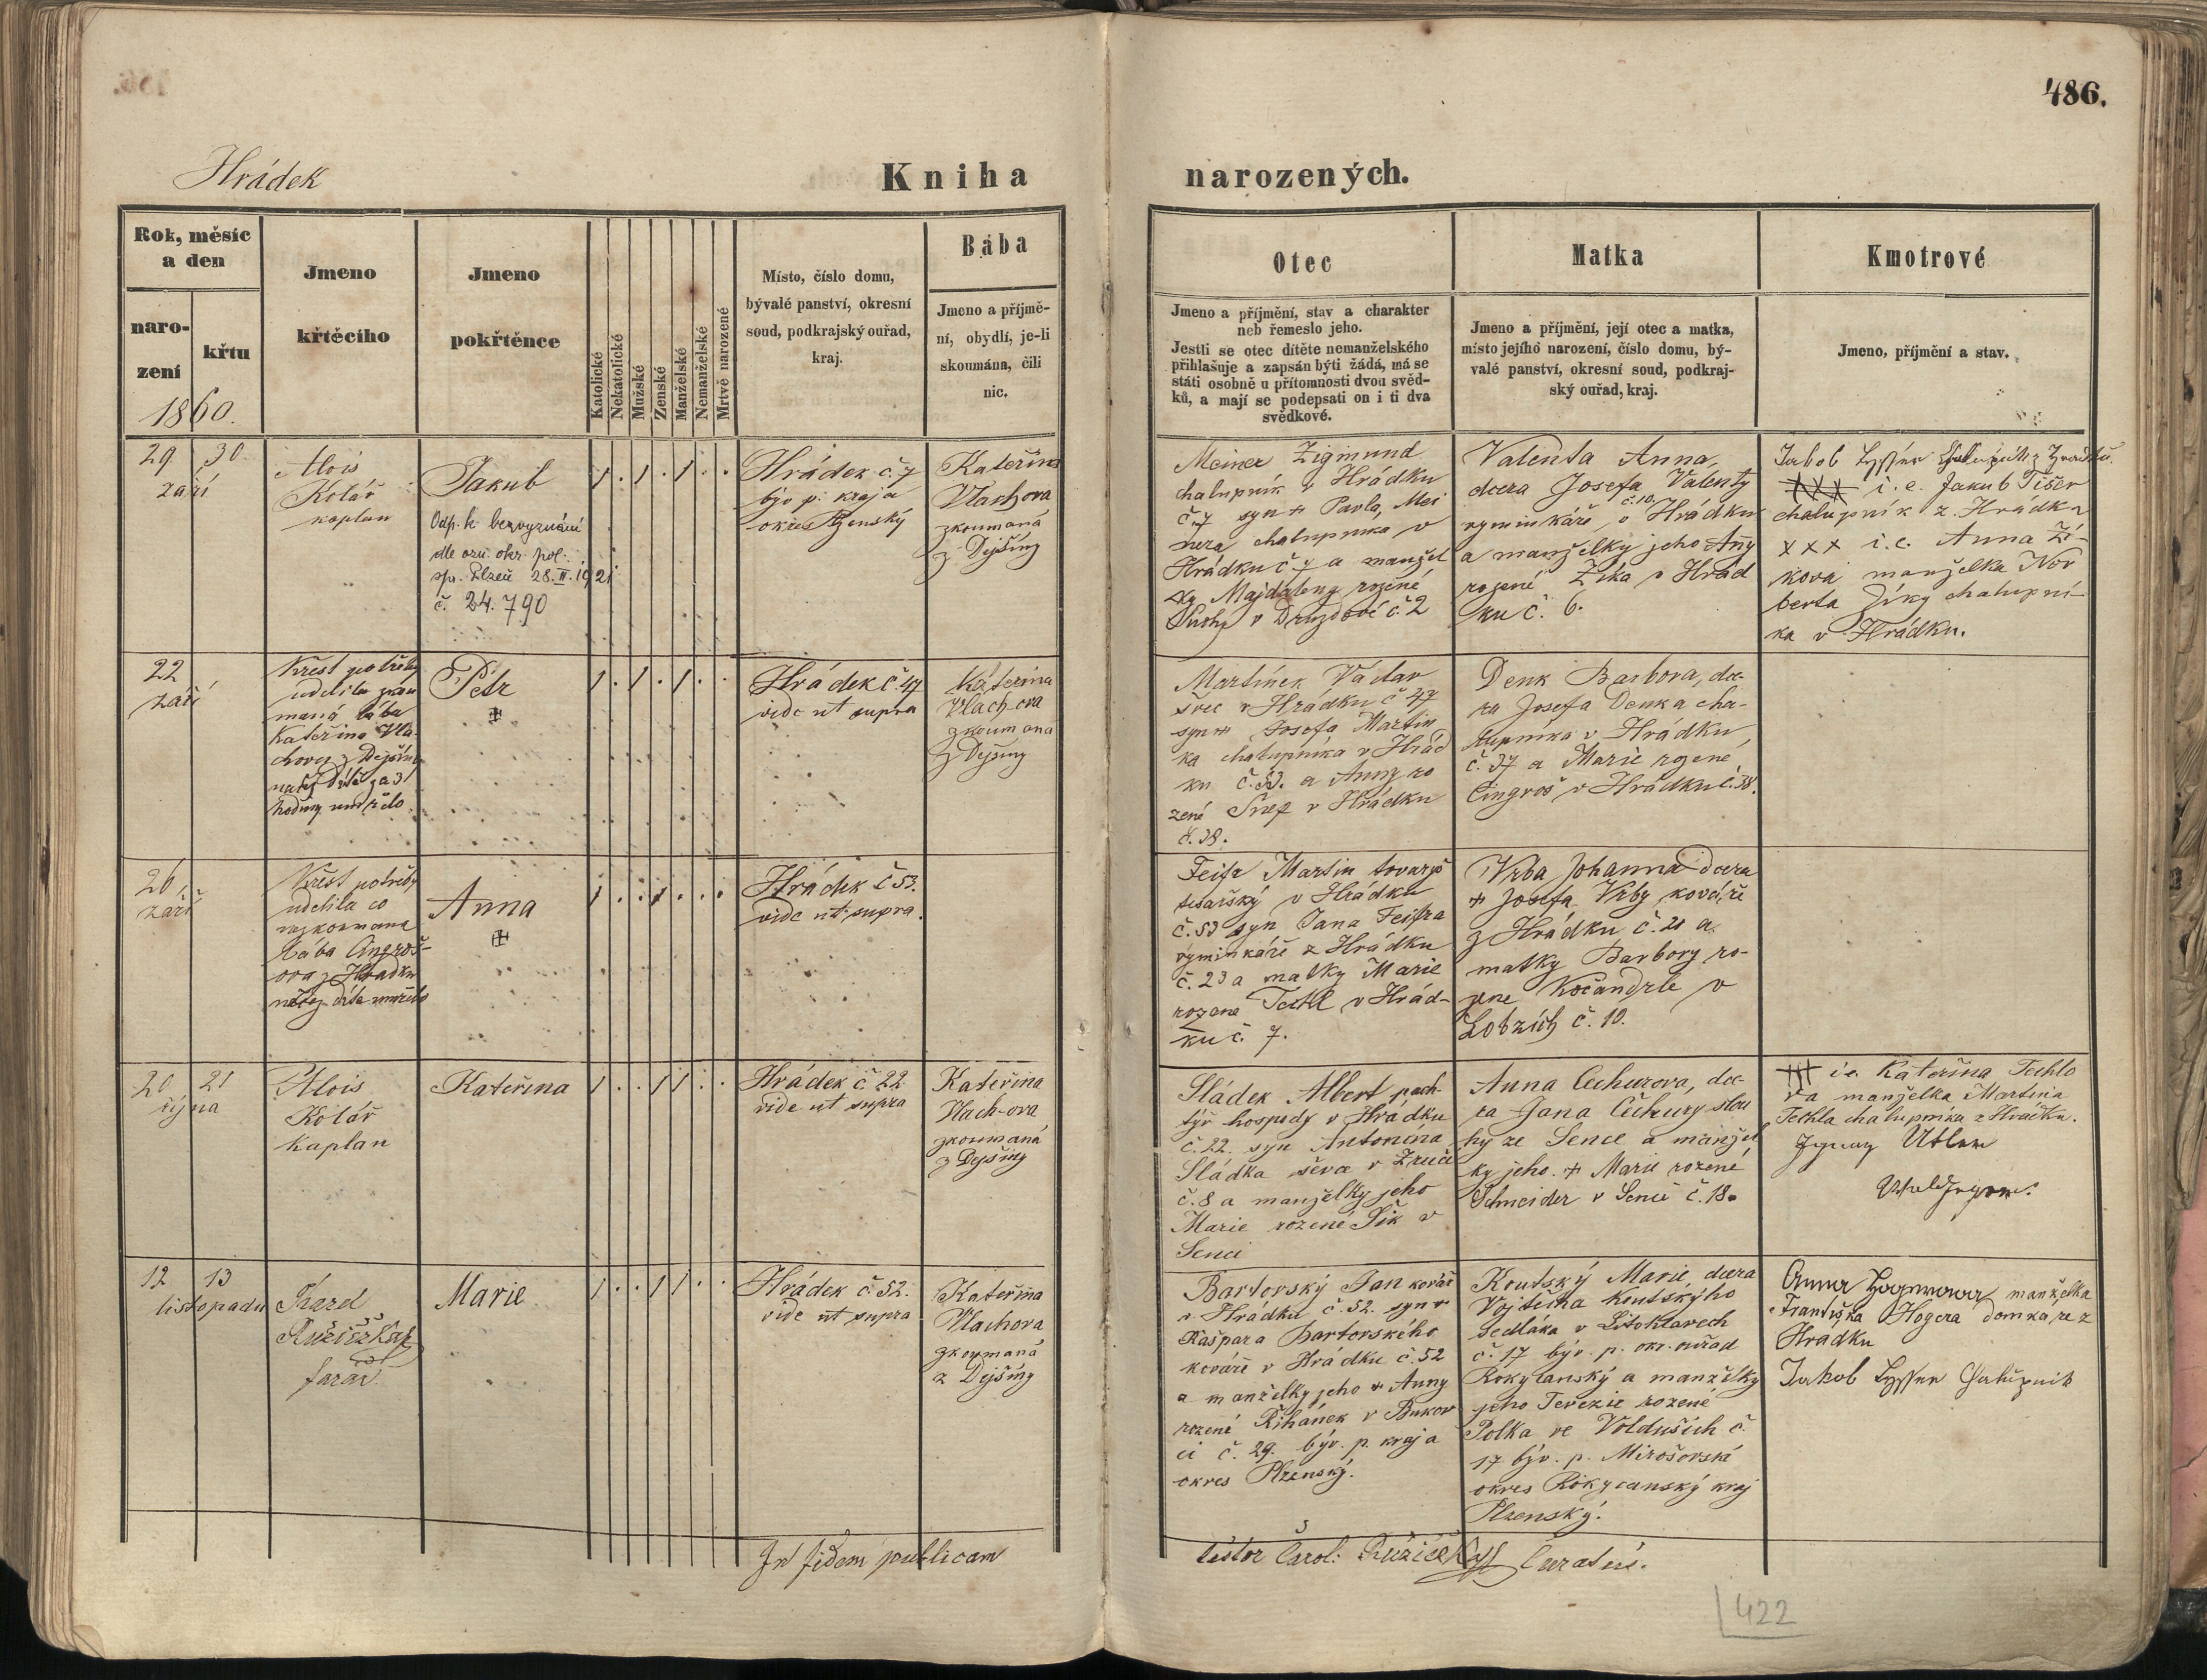 486.
Hrádek
Kniha narozených.
Rok, měsíc
a den
naro-
zení
křtu
1860.
Jmeno
křtěcího
Jmeno
pokřtěnce
Katolické
Nekatolické
Mužské
Zenské
Manželské
Nemanželské
Mrtvě narozené
Místo, číslo domu,
bývalé panství, okresní
soud, podkrajský ouřad,
kraj.
Bába
Jmeno a příjmě-
ní, obydlí, je-li
skoumána, čili
nic.
Otec
Jmeno a příjmění, stav a charakter
neb řemeslo jeho.
Jestli se otec dítěte nemanželského
přihlašuje a zapsán býti žádá, má se
státi osobně u přítomnosti dvou svěd-
ků, a mají se podepsati on i ti dva
svědkové.
Matka
Jmeno a příjmění, její otec a matka,
místo jejího narození, číslo domu, bý-
valé panství, okresní soud, podkraj-
ský ouřad, kraj.
Kmotrové
Jmeno, příjmění a stav.
29 30.
září
Alois
Kolář
kaplan
Jakub
Odp. k bezvyznání
dle ozn. okr. pol.
sp. Plzeň 28.II.1921
č. 24.790
1 . 1 . 1 . .
Hrádek č. 7
býv p. kraj a
okres Plzenský
Kateřina
Vlachova
zkoumaná
z Dejšiny
Meiner Zigmund
chalupník v Hrádku
č. 7 syn + Pavla Mei
nera chalupníka v
Hrádku č 7 a manžel
ky Majdaleny rozené
Suchý v Druzdově č 2
Valenta Anna,
dcera Josefa Valenty
č. 10.
vyminkáře v Hrádku
a manželky jeho Anny
rozené Zíka v Hrád
ku č. 6.
Jakob
xxx i. e. Jakub Tišer
chalupník z Hrádku
x x x i. e. Anna Zí-
kova manželka Nor
berta Zíky chalupní-
ka v Hrádku.
22
září
Křest potřeby
udelila zkou
maná bába
Kateřina Vla-
chova z Dejšiny
načež Dítě za 3
hodiny umřelo.
Petr
1 . 1 . 1 . .
Hrádek č. 47
vide ut supra
Kateřina
Vlach-ova
zkoumana
z Dejšiny
Martínek Václav
švec v Hrádku č 47
syn + Josefa Martín
ka chalupníka v Hrád
ku č. 33. a Anny ro
zené v Hrádku
č. 38.
Denk Barbora, dce-
ra Josefa Denka cha-
lupníka v Hrádku
č. 37 a Marie rozené
Cingroš v Hrádku č. 38.
26
září
Křest potřeby
udelila co
nezkoumana
bába Cingroš-
ova z Hradku
načež díte umřelo
Anna
1 . . 1 . . .
Hrádek č 53.
vide ut supra.
Feifr Martin tovaryš
tesařský v Hrádku
č. 53 syn Jana Feifra
výminkáře z Hrádku
č. 23 a matky Marie
rozene Techl v Hrád-
ku č. 7.
Vrba Johanna dcera
+ Josefa Vrby kováře
z Hrádku č. 21 a
matky Barbory ro-
zene Kočandrle v
Lobzích č. 10.
20 21
října
Alois
Kolář
Kaplan
Kateřina
1 . . 1 1 . .
Hrádek č 22
vide ut supra
Kateřina
Vlach-ova
zkoumaná
z Dejšiny
Sládek Albert pach-
týř hospody v Hrádku
č. 22. syn Antonína
Sládka ševce v Zruči
č. 8 a manželky jeho
Marie rozené Šik v
Senci
Anna Cechurová, dce-
ra Jana Čechury slou
hy ze Sence a manžel
ky jeho + Marie rozené
Schneider v Senci č. 18.
+++ i.e. Kateřina Techlo
va manželka Martina
Techla chalupníka z Hradku.
12 13
listopadu
Karel
Růžiczka
farář
Marie
1 . . 1 1 . .
Hrádek č. 52.
vide ut supra
Kateřina
Vlachova
zkoumaná
z Dejšiny
Bartovský Jan kovář
v Hrádku č. 52. syn +
Kašpara Bartovského
kováře v Hrádku č. 52
a manželky jeho + Anny
rozené Řihánek v Bukov
ci č. 29. býv. p. kraj a
okres Plzenský.
Koutský Marie, dcera
Vojtěcha Koutského
sedláka v Litohlavech
č. 17 býv. p. okr. ouřad
Rokycanský a manželky
jeho Terezie rozené
Polka ve Voldušich č.
17 býv. p. Mirošovská
okres Rokycanský kraj
Plzenský.
Anna manželka
Františka Hogera domkaře z
Hradku
Jakob
In fidem publicam
testor Carol: Růžiczka Curatus.
422